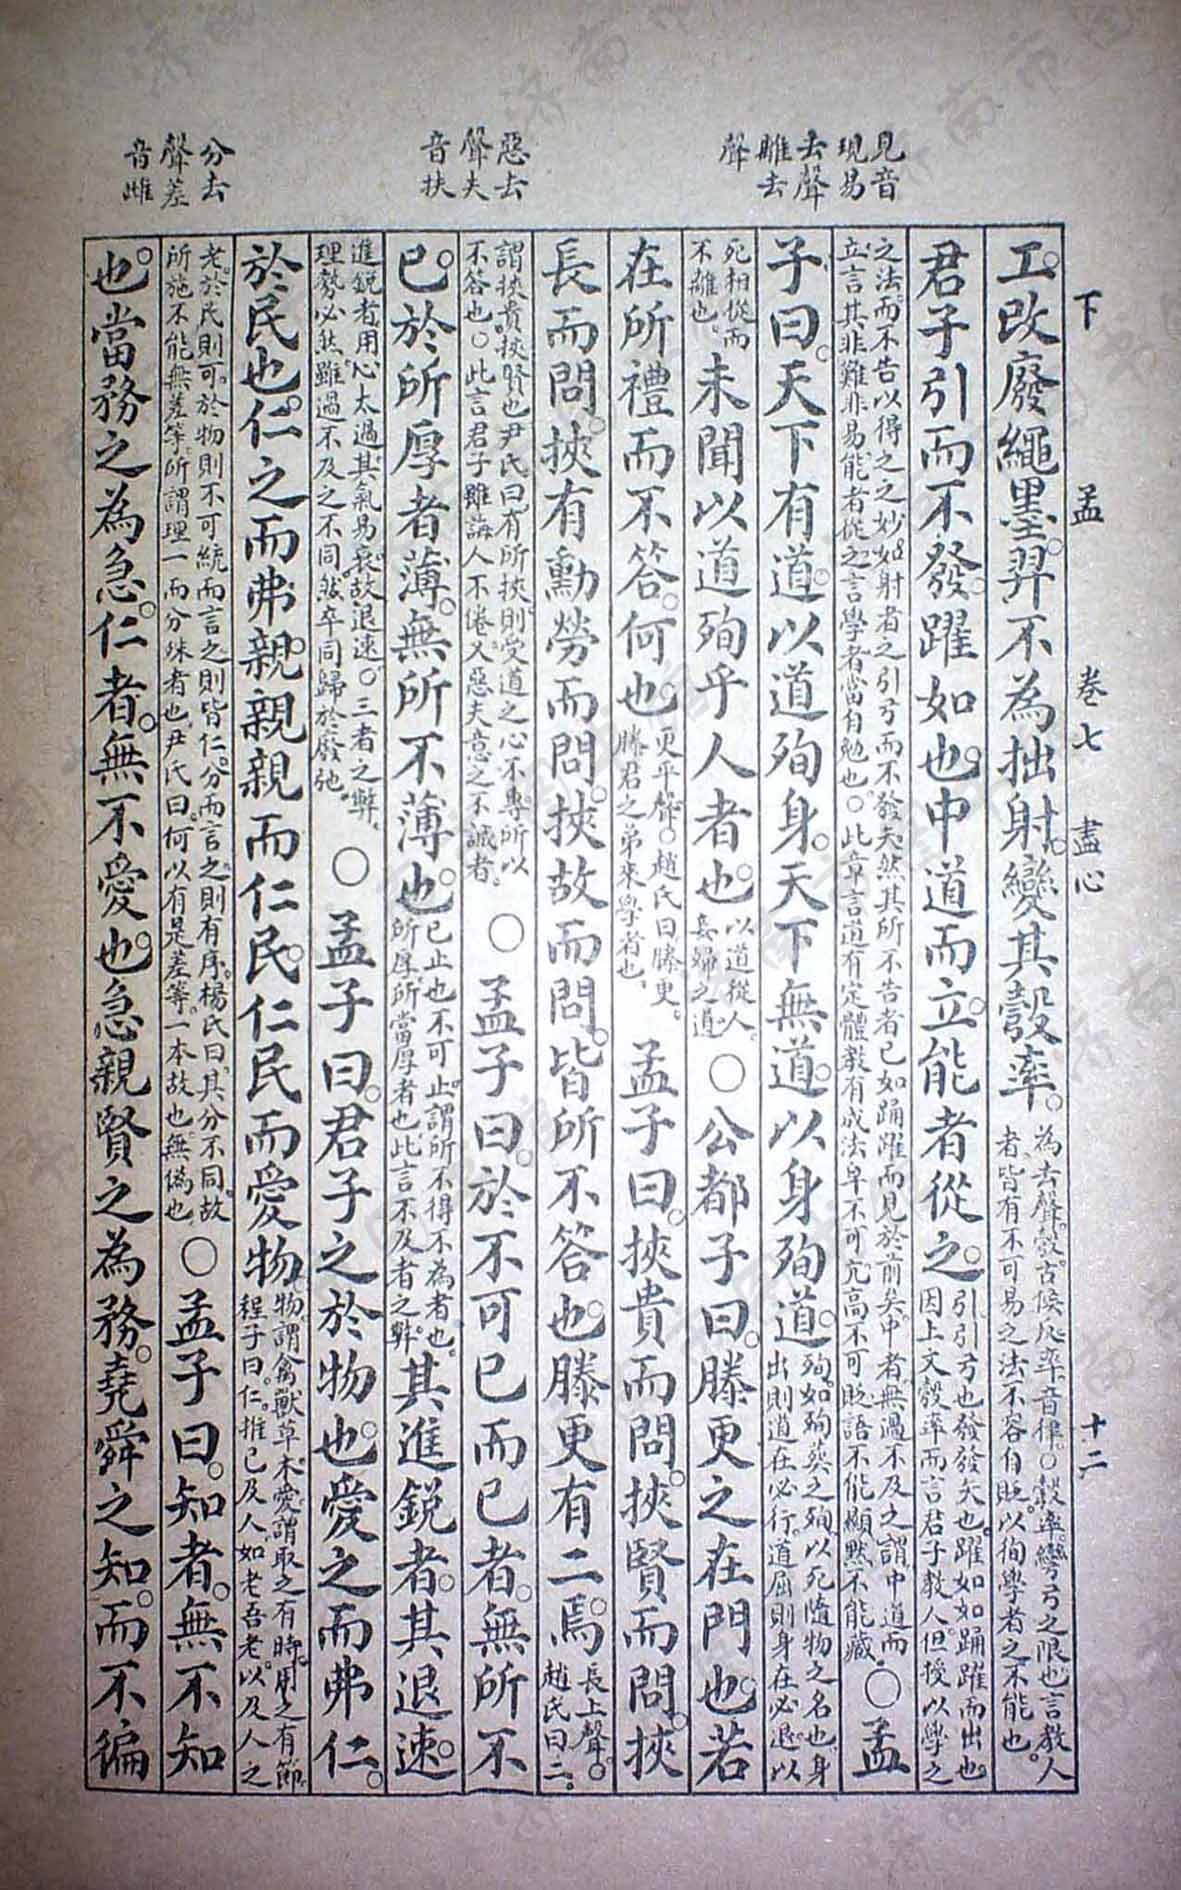 見音
現易
去聲
離去
聲
惡去
聲夫
音扶
分去
聲差
音雌
下 孟 卷七 盡心 十二
工。改廢繩墨。羿不為拙射。變其彀率。為去聲。彀古候反。率音律。○彀率。彎弓之限也。言教人
者。皆有不可易之法。不容自貶。以徇學者之不能也。
君子引而不發。躍如也。中道而立。能者從之。引。引弓也。發。發矢也。躍如。如踊躍而出也。
因上文彀率。而言君子教人。但授以學之
之法。而不告以得之之妙。如射者之引弓而不發矢。然其所不告者。已如踊躍而見於前矣。中者。無過不及之謂。中道而
立。言其非難非易。能者從之。言學者當自勉也。○此章言道有定體。教有成法。卑不可亢。高不可貶。語不能顯。默不能藏。
○孟
子曰。天下有道。以道殉身。天下無道。以身殉道。殉。如殉葬之殉。以死隨物之名也。身
出則道在必行。道屈則身在必退。以
死相從而
不離也。
未聞以道殉乎人者也。以道從人。
妾婦之道
○公都子曰。滕更之在門也。若
在所禮而不答。何也。更平聲。○趙氏曰。滕更。
滕君之弟。來學者也。
孟子曰。挾貴而問。挾賢而問。挾
長而問。挾有勳勞而問。挾故而問。皆所不答也。滕更有二焉。長上聲。○
趙氏曰。二。
謂挾貴。挾賢也。尹氏曰。有所挾。則受道之心不專。所以
不答也。○此言君子雖誨人不倦。又惡夫意之不誠者。
○孟子曰。於不可已而已者。無所不
已。於所厚者薄。無所不薄也。已。止也。不可止。謂所不得不為者也。
所厚。所當厚者也。此言不及者之弊。
其進銳者。其退速。
進銳者。用心太過。其氣易衰。故退速。○三者之弊。
理勢必然。雖過不及之不同。然卒同歸於廢弛。
○孟子曰。君子之於物也。愛之而弗仁。
於民也。仁之而弗親。親親而仁民。仁民而愛物。物。謂禽獸草木。愛。謂取之有時。用之有節。
程子曰。仁。推己及人。如老吾老。以及人之
老。於民則可。於物則不可。統而言之則皆仁。分而言之。則有序。楊氏曰。其分不同。故
所施不能無差等。所謂理一而分殊者也。尹氏曰。何以有是差等。一本故也。無偽也
○孟子曰。知者。無不知
也。當務之為急。仁者。無不愛也。急親賢之為務。堯舜之知。而不徧